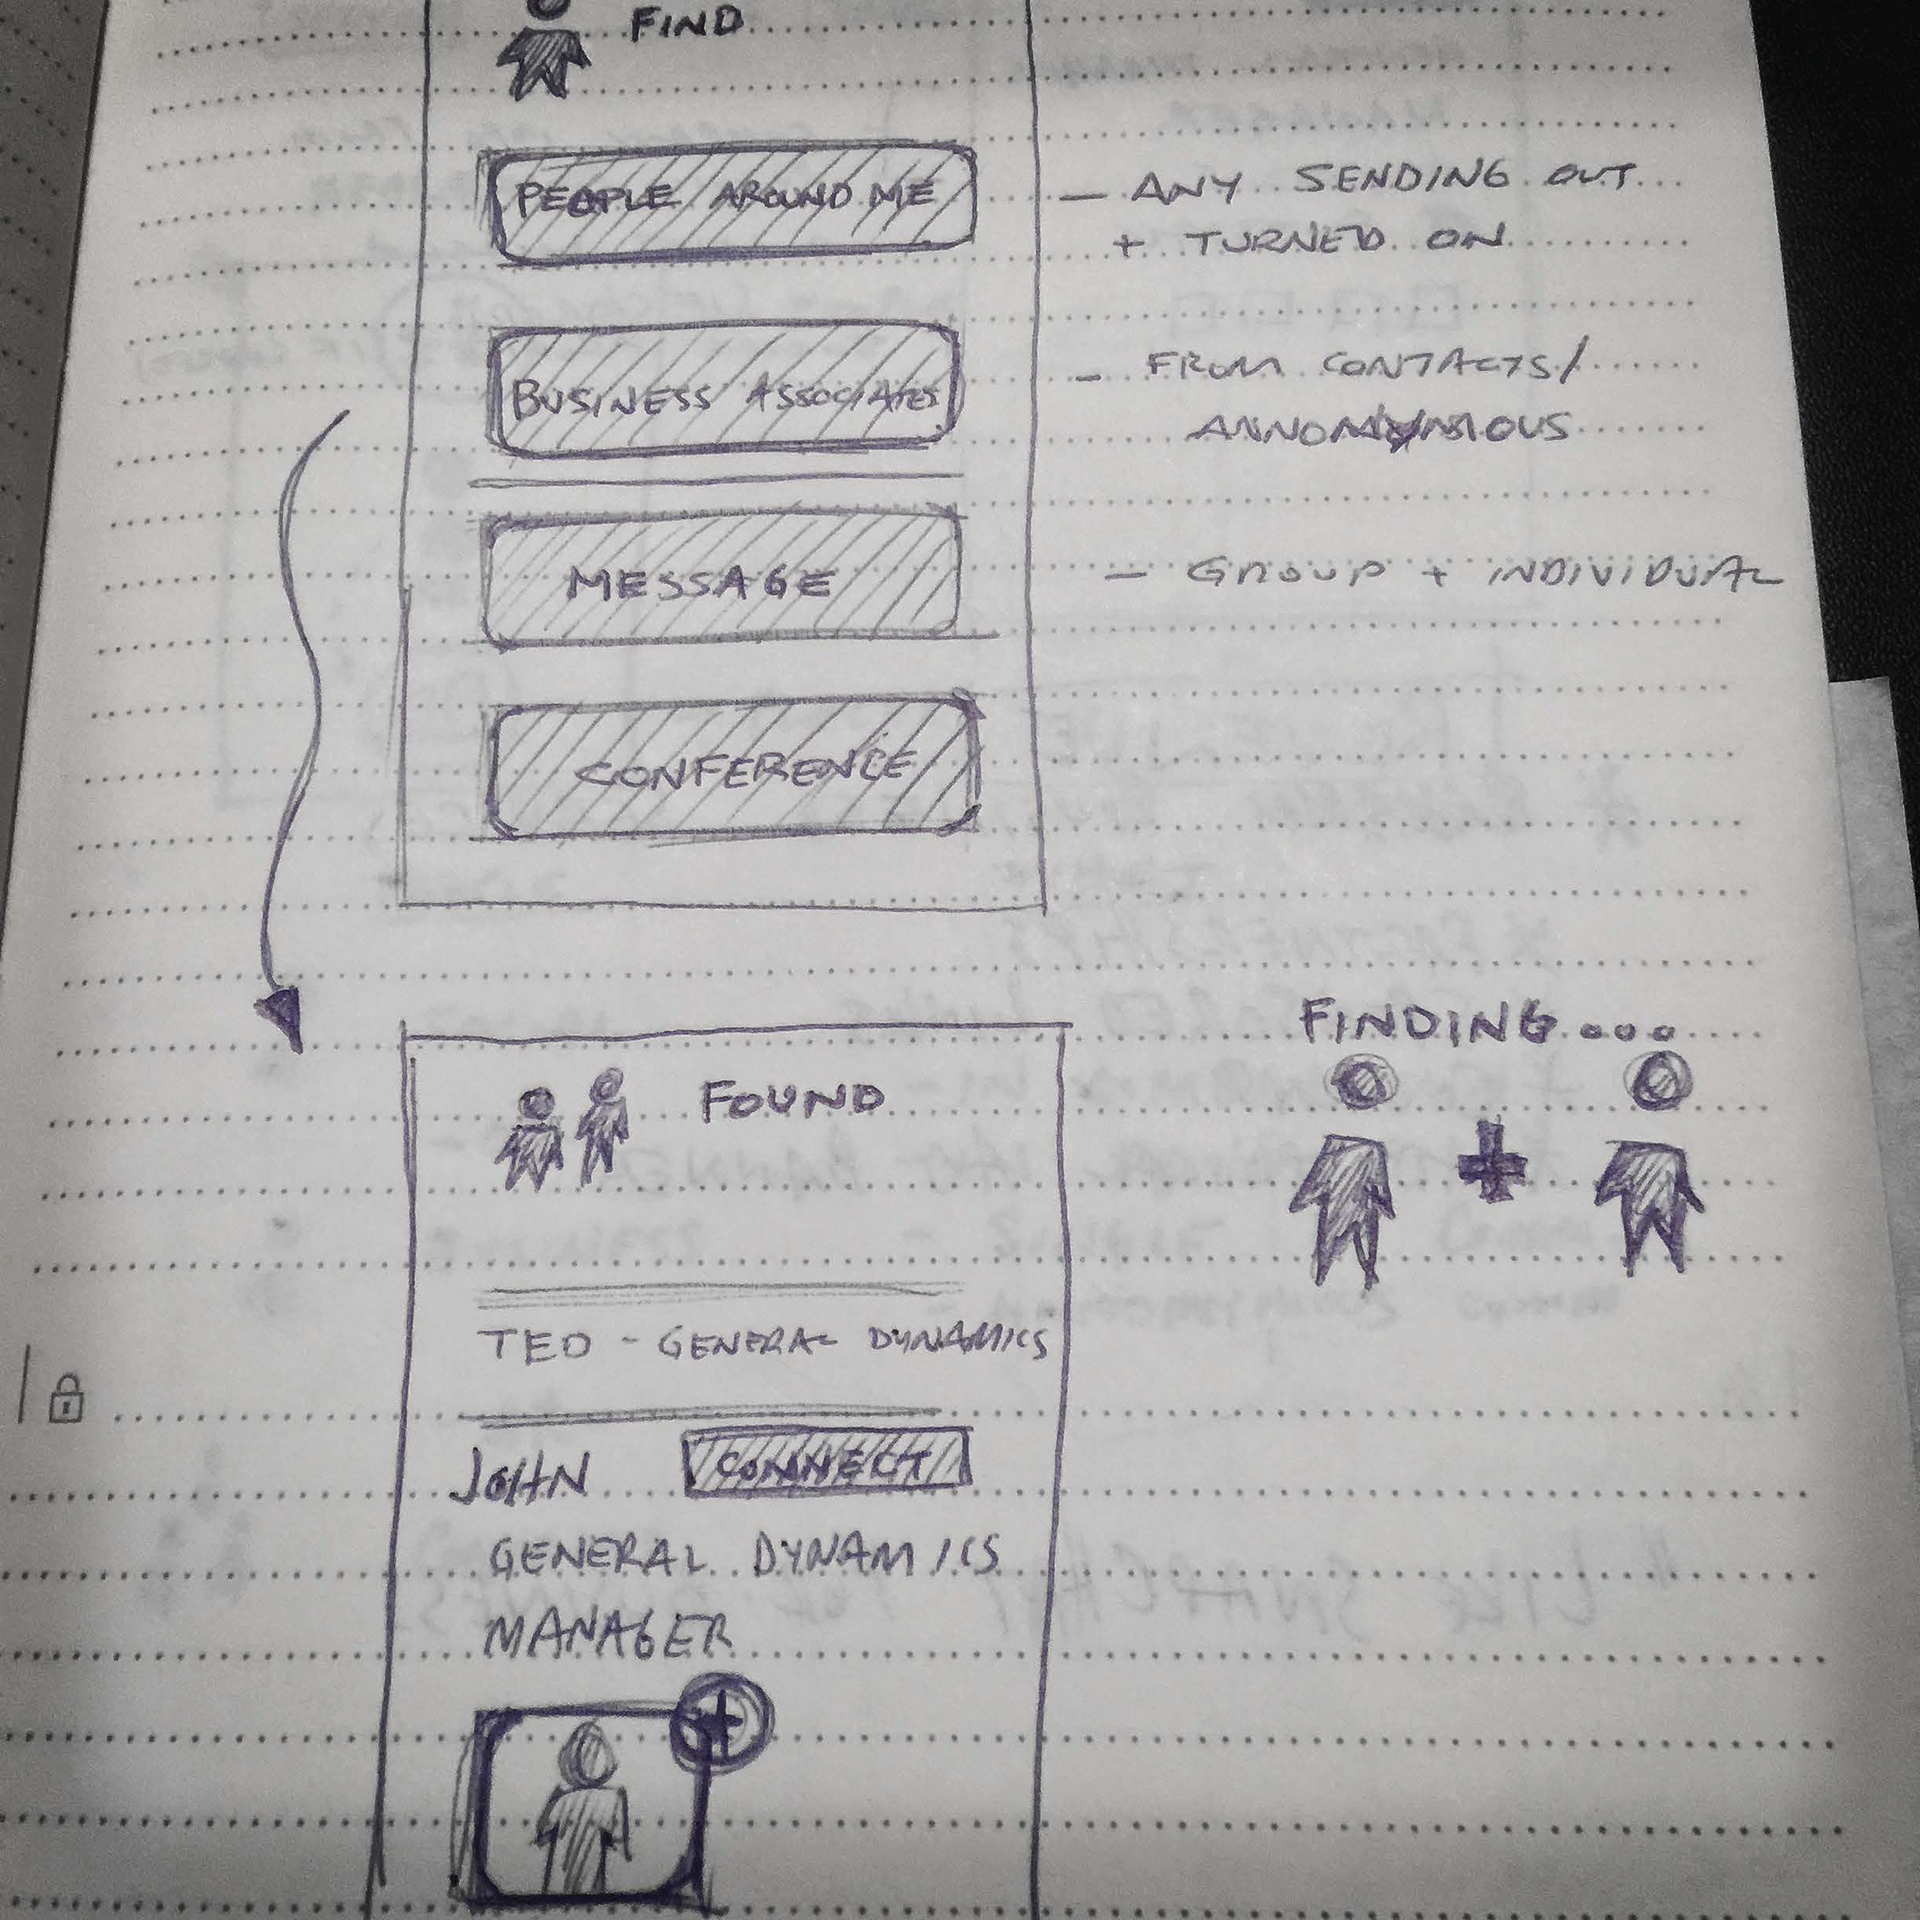 FIND
PEOPLE AROUND ME
- ANY SENDING OUT
+ TURNED ON
BUSINESS ASSOCIATES
- FROM CONTACTS/
ANNOMYNIOUS
MESSAGE
- GROUP + INDIVIDUAL
CONFERENCE
FINDING...
FOUND
TED - GENERAL DYNAMICS
JOHN CONNECT
GENERAL DYNAMICS
MANAGER